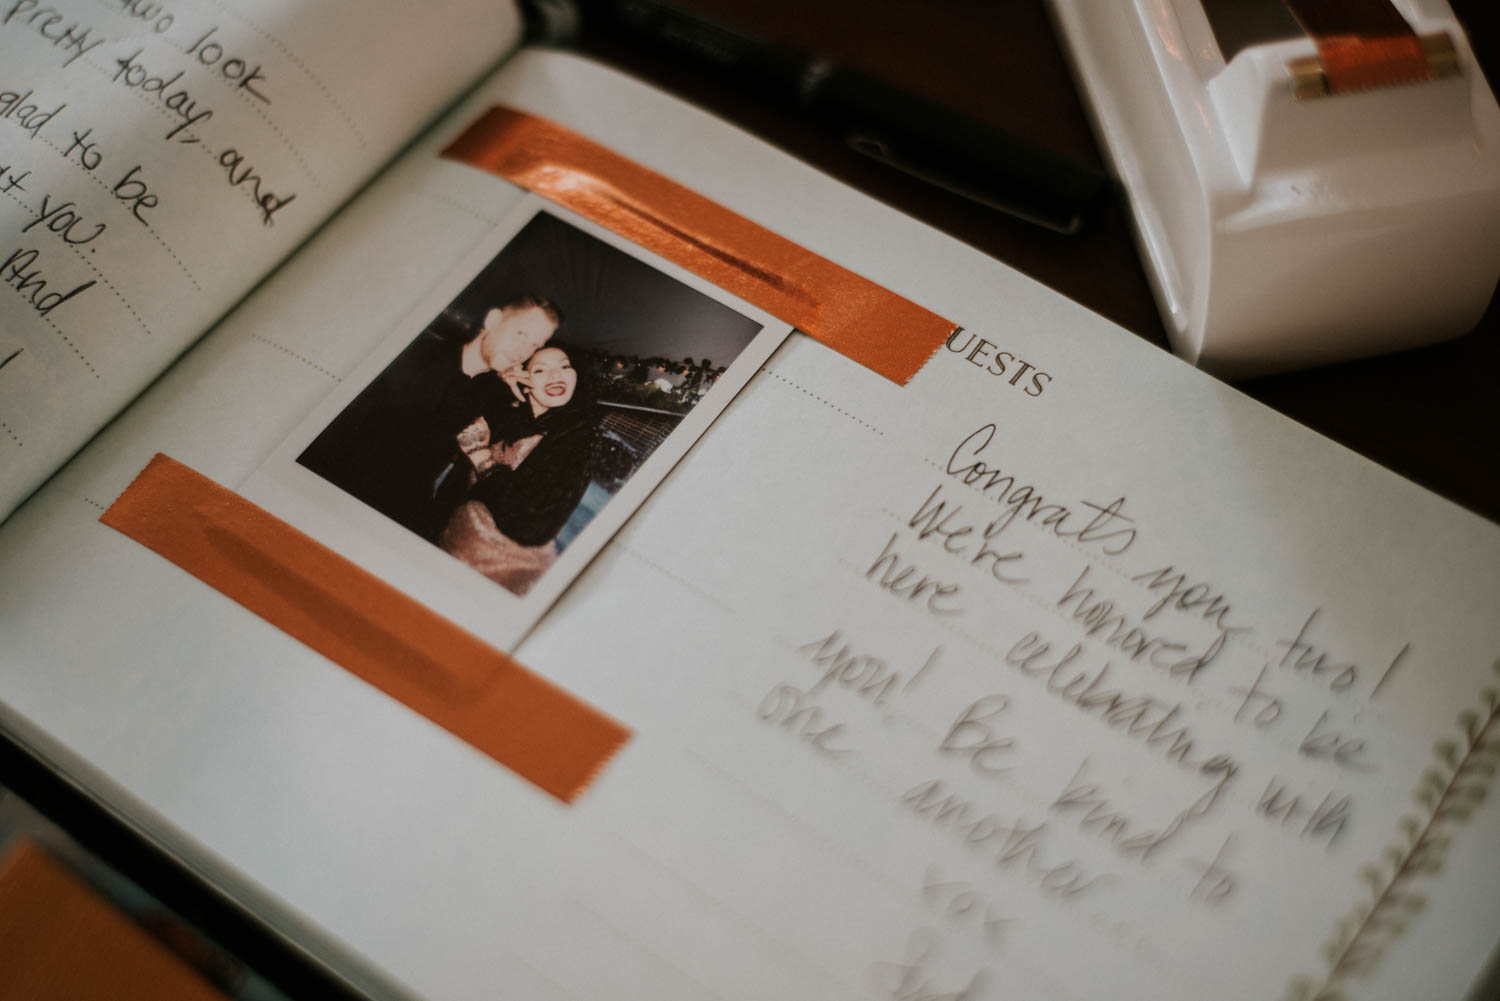 two look
pretty today, and
glad to be
at you.
And
UESTS
Congrats you two!
We're honored to be
here celebrating with
you! Be kind to
one another...
xox